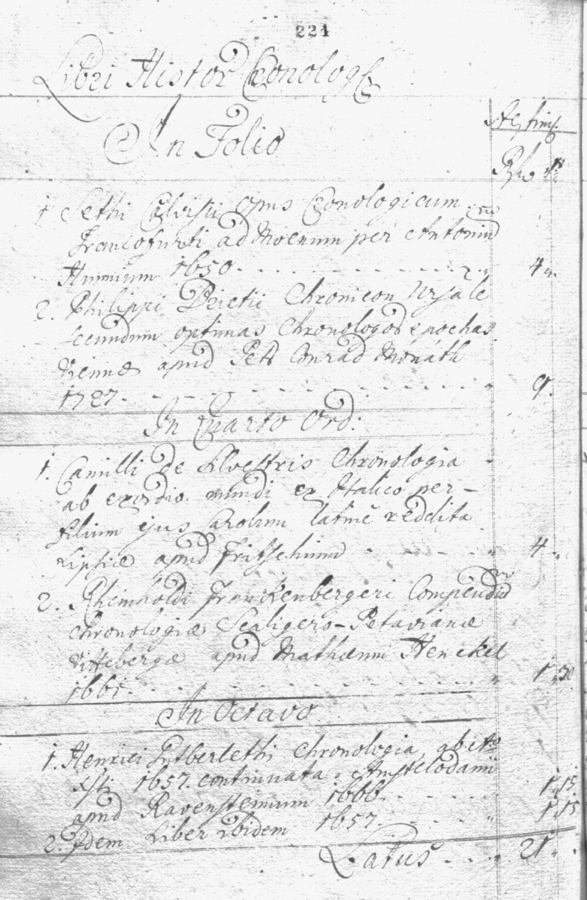 221
Libri Histor Cronolog
In Folio
Æstim
1 Sethi Calvisii opus Cronologicum
Francofurti ad Moenum per Antonium
Hummium 1650. 4
2. Philippi Chronicon
secundum optimas Chronologos epochas
Viennæ apud Petr Conrad Monath
1727. 9.
In Quarto Ord:
1. Camilli de Silvestris Chronologia
ab exordio mundi ex Italico per
filium ejus Carolum latine reddita
Lipsiæ apud Fritschium 4
2. Rheinholdi Franckenbergeri Compendium
Chronologiæ Scaligero-Petavianæ
Vittebergæ apud Mathæum Henckel
1661. 1. 30
In Octavo
1. Henrici Gutberlethi Chronologia ab
1657. continuata. Amstelodami
apud Ravensteinium 1666. 1. 15
2. Idem Liber ibidem 1657. 1. 15
Latus 21